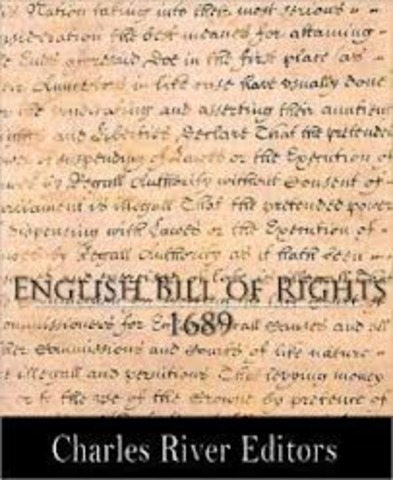 Nation taking into their most serious
Consideration the best meanes for attaining
the Ends aforesaid Doe in the first place (as
their Auncestors in like case have usually done
the vindicating and asserting their auntient
rights and Liberties Declare That the pretended
power of suspending of Lawes or the Execution of
Lawes by Regall Authority without Consent of
Parliament is illegall That the pretended power
dispensing with Lawes or the Execution of
Lawes by Regall Authority as it hath been
ENGLISH BILL OF RIGHTS
1689
Commissioners for all
other Commissions and Courts of like nature
are illegall and pernitious That levying money
or to the use of the Crowne by pretence of
Charles River Editors